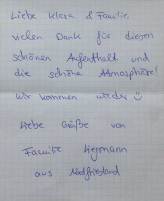 Liebe Klara & Familie
vielen Dank für diesen
schönen Aufenthalt und
die schöne Atmosphäre!
Wir kommen wieder ☺
Liebe Grüße von
Familie Hermann
aus Nordfriesland